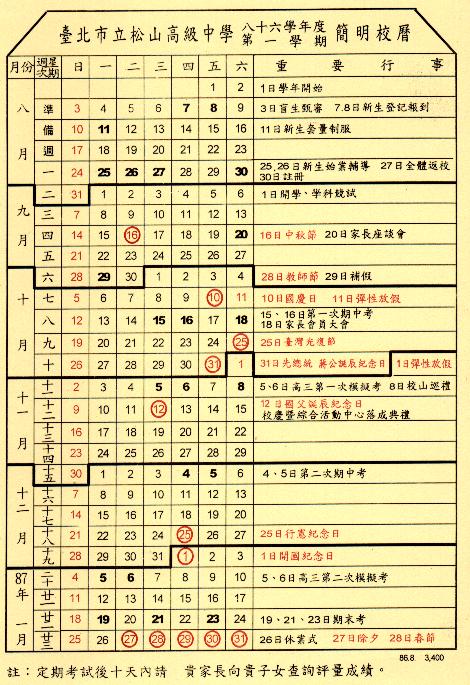 臺北市立松山高級中學 八十六學年度第一學期 簡明校曆
月份 週次 星期 日 一 二 三 四 五 六 重要行事
八月 1 2 1日學年開始
準 3 4 5 6 7 8 9 3日盲生甄審 7.8日新生登記報到
備 10 11 12 13 14 15 16 11日新生套量制服
週 17 18 19 20 21 22 23
一 24 25 26 27 28 29 30 25,26日新生始業輔導 27日全體返校
30日註冊
九月 二 31 1 2 3 4 5 6 1日開學、學科競試
三 7 8 9 10 11 12 13
四 14 15 16 17 18 19 20 16日中秋節 20日家長座談會
五 21 22 23 24 25 26 27
十月 六 28 29 30 1 2 3 4 28日教師節 29日補假
七 5 6 7 8 9 10 11 10日國慶日 11日彈性放假
八 12 13 14 15 16 17 18 15、16日第一次期中考
18日家長會員大會
九 19 20 21 22 23 24 25 25日臺灣光復節
十 26 27 28 29 30 31 1 31日先總統 蔣公誕辰紀念日 1日彈性放假
十一月 十一 2 3 4 5 6 7 8 5、6日高三第一次模擬考 8日校山巡禮
十二 9 10 11 12 13 14 15 12日國父誕辰紀念日
校慶暨綜合活動中心落成典禮
十三 16 17 18 19 20 21 22
十四 23 24 25 26 27 28 29
十二月 十五 30 1 2 3 4 5 6 4、5日第二次期中考
十六 7 8 9 10 11 12 13
十七 14 15 16 17 18 19 20
十八 21 22 23 24 25 26 27 25日行憲紀念日
十九 28 29 30 31 1 2 3 1日開國紀念日
87年一月 二十 4 5 6 7 8 9 10 5、6日高三第二次模擬考
廿一 11 12 13 14 15 16 17
廿二 18 19 20 21 22 23 24 19、21、23日期末考
廿三 25 26 27 28 29 30 31 26日休業式 27日除夕 28日春節
86.8 3,400
註：定期考試後十天內請 貴家長向貴子女查詢評量成績。